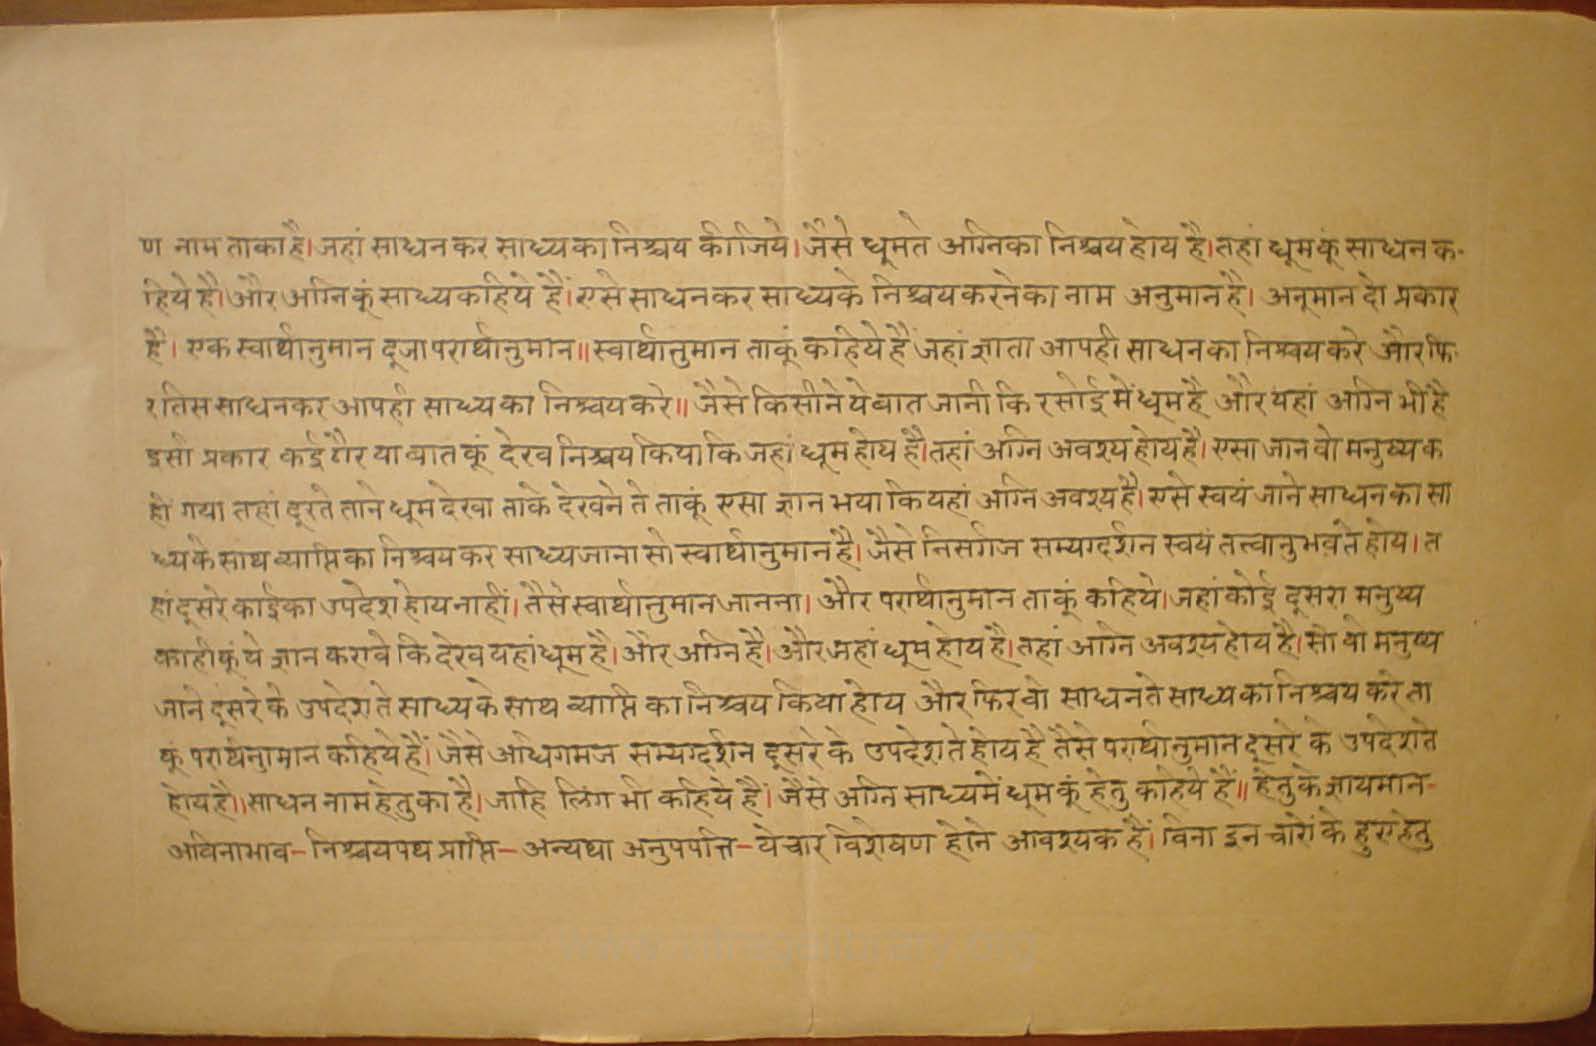 ण नाम ताका है। जहां साधन कर साध्य का निश्चय कीजिये। जैसे धूमते अग्निका निश्चय होय है। तहां धूम कूं साधन क-
हिये है। और अग्नि कूं साध्य कहिये हैं। एसे साधन कर साध्य के निश्चय करने का नाम अनुमान है। अनूमान दो प्रकार
है। एक स्वार्थानुमान दूजा परार्थानुमान॥ स्वार्थानुमान ताकूं कहिये हैं जहां ज्ञाता आपही साधन का निश्चय करे और फि-
र तिस साधन कर आपही साध्य का निश्चय करे॥ जैसे किसीने ये बात जानी कि रसोई में धूम है और यहां अग्नि भी है
इसी प्रकार कई ठौर या बात कूं देख निश्चय किया कि जहां धूम होय है। तहां अग्नि अवश्य होय है। एसा जान वो मनुष्य क
ही गया तहां दूरते ताने धूम देखा ताके देखने ते ताकूं एसा ज्ञान भया कि यहां अग्नि अवश्य है। एसे स्वयं जाने साधन का सा
ध्य के साथ व्याप्ति का निश्चय कर साध्य जाना सो स्वार्थानुमान है। जैसे निसर्गज सम्यग्दर्शन स्वयं तत्त्वानुभव ते होय। त
हां दूसरे काईका उपदेश होय नाहीं। तैसे स्वार्थानुमान जानना। और परार्थानुमान ताकूं कहिये। जहां कोई दूसरा मनुष्य
काहीकूं ये ज्ञान करावे कि देख यहां धूम है। और अग्नि है। और जहां धूम होय है। तहां अग्नि अवश्य होय है। सो वो मनुष्य
जाने दूसरे के उपदेश ते साध्य के साथ व्याप्ति का निश्चय किया होय और फिर वो साधन ते साध्य का निश्चय करे ता
कूं परार्थनुामान कहिये हैं। जैसे अधिगमज सम्यग्दर्शन दूसरे के उपदेश ते होय है तैसे परार्थानुमान दूसरे के उपदेश ते
होय है॥ साधन नाम हेतु का है। जाहि लिंग भी कहिये हैं। जैसे अग्नि साध्य में धूम कूं हेतु कहिये हैं॥ हेतु के ज्ञायमान-
अविनाभाव-निश्चयपथ प्राप्ति-अन्यथा अनुपपत्ति-ये चार विशेषण होने आवश्यक हैं। विना इन चारों के हुए हेतु